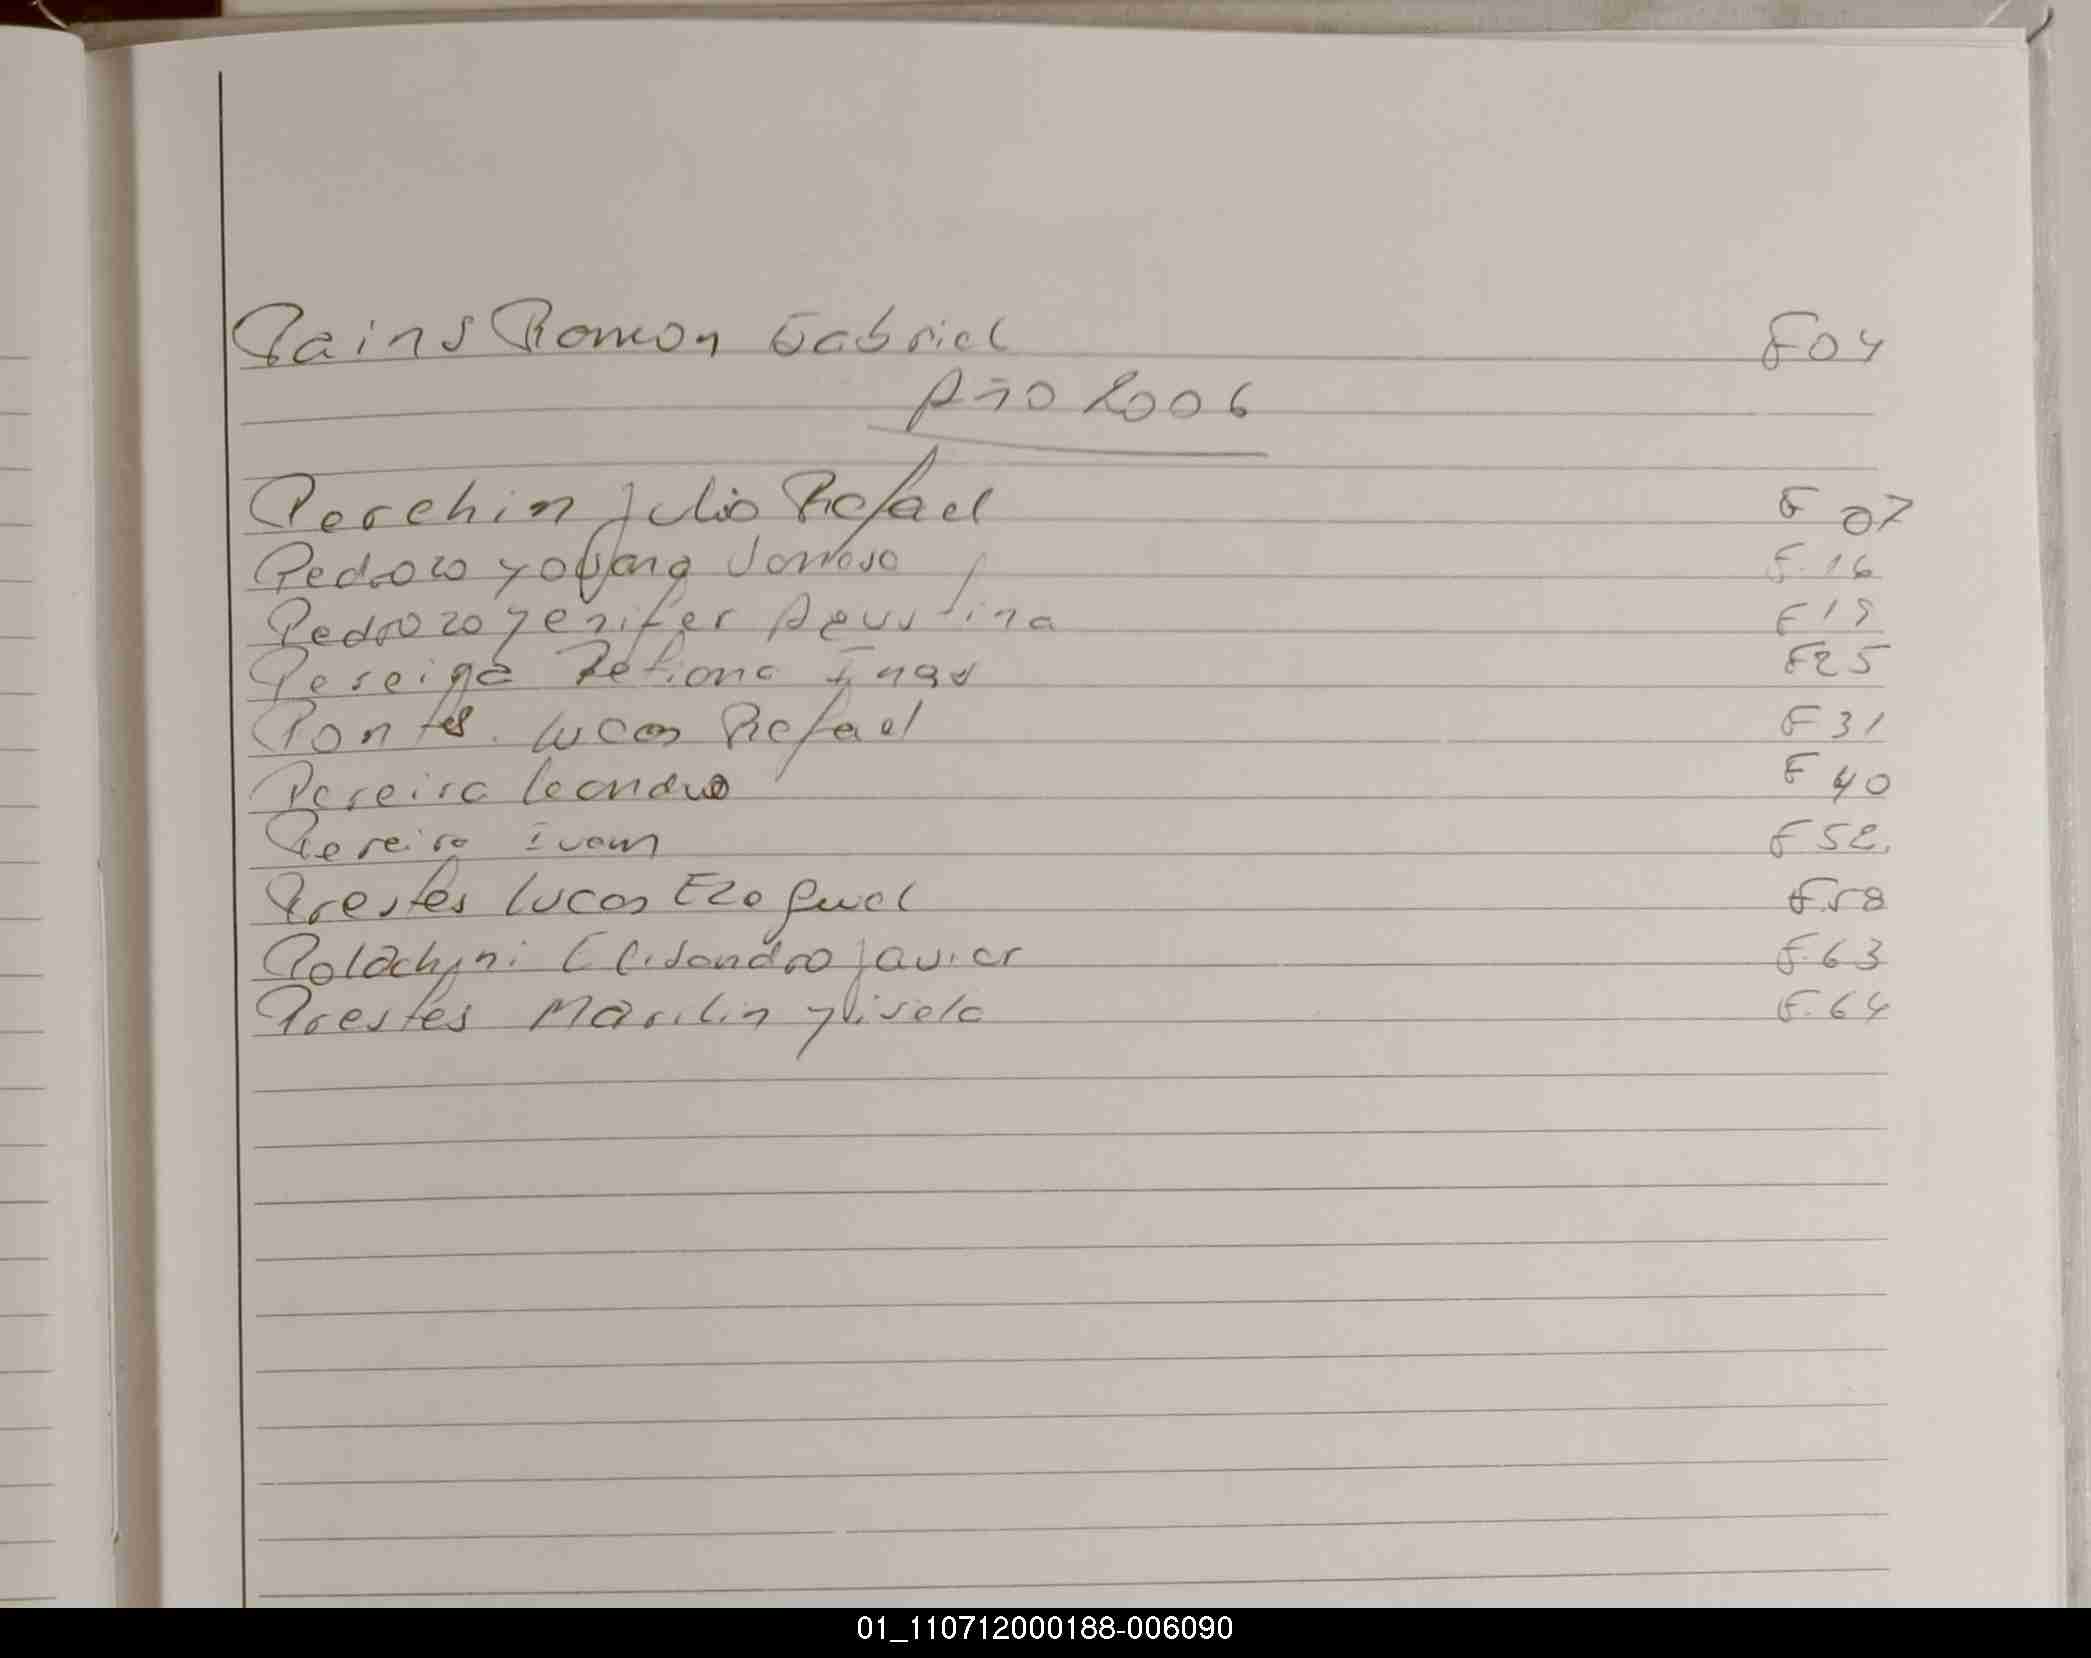 Pains Ramon Gabriel F04
Año 2006
Perchin Julio Rafael F 07
Pedrozo yohana F.16
Pedrozo yenifer Agustina F19
Tatiana F25
Pontes. Lucas Rafael F31
Pereira Leandro F 40
Pereira Ivan F52.
Prestes Lucas Ezequiel F.58
Polachini Elisandro javier F.63
Prestes Marilin yisela F.64
01_110712000188-006090